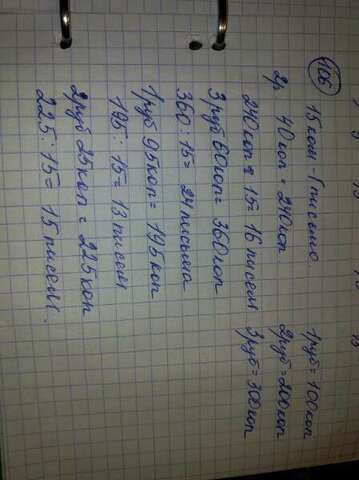 106
15 коп - 1 письмо
2р 40 коп = 240 коп
240 коп : 15 = 16 писем
3 руб 60 коп = 360 коп
360 : 15 = 24 письма
1 руб 95 коп = 195 коп
195 : 15 = 13 писем
2 руб 25 коп = 225 коп
225 : 15 = 15 писем.
1 руб = 100 коп
2 руб = 200 коп
3 руб = 300 коп